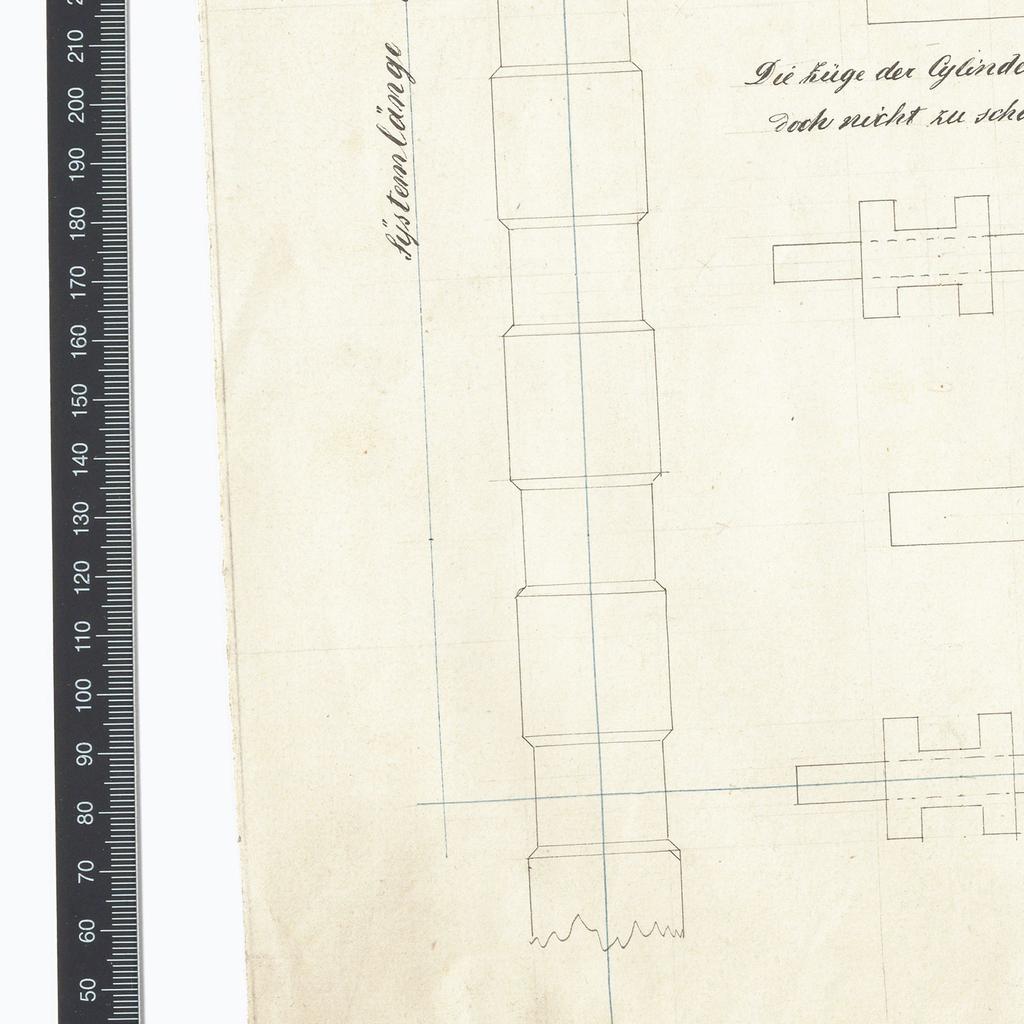 210
200
190
180
170
160
150
140
130
120
110
100
90
80
70
60
50
Systemlänge
Die Züge der Cylinde
doch nicht zu scha